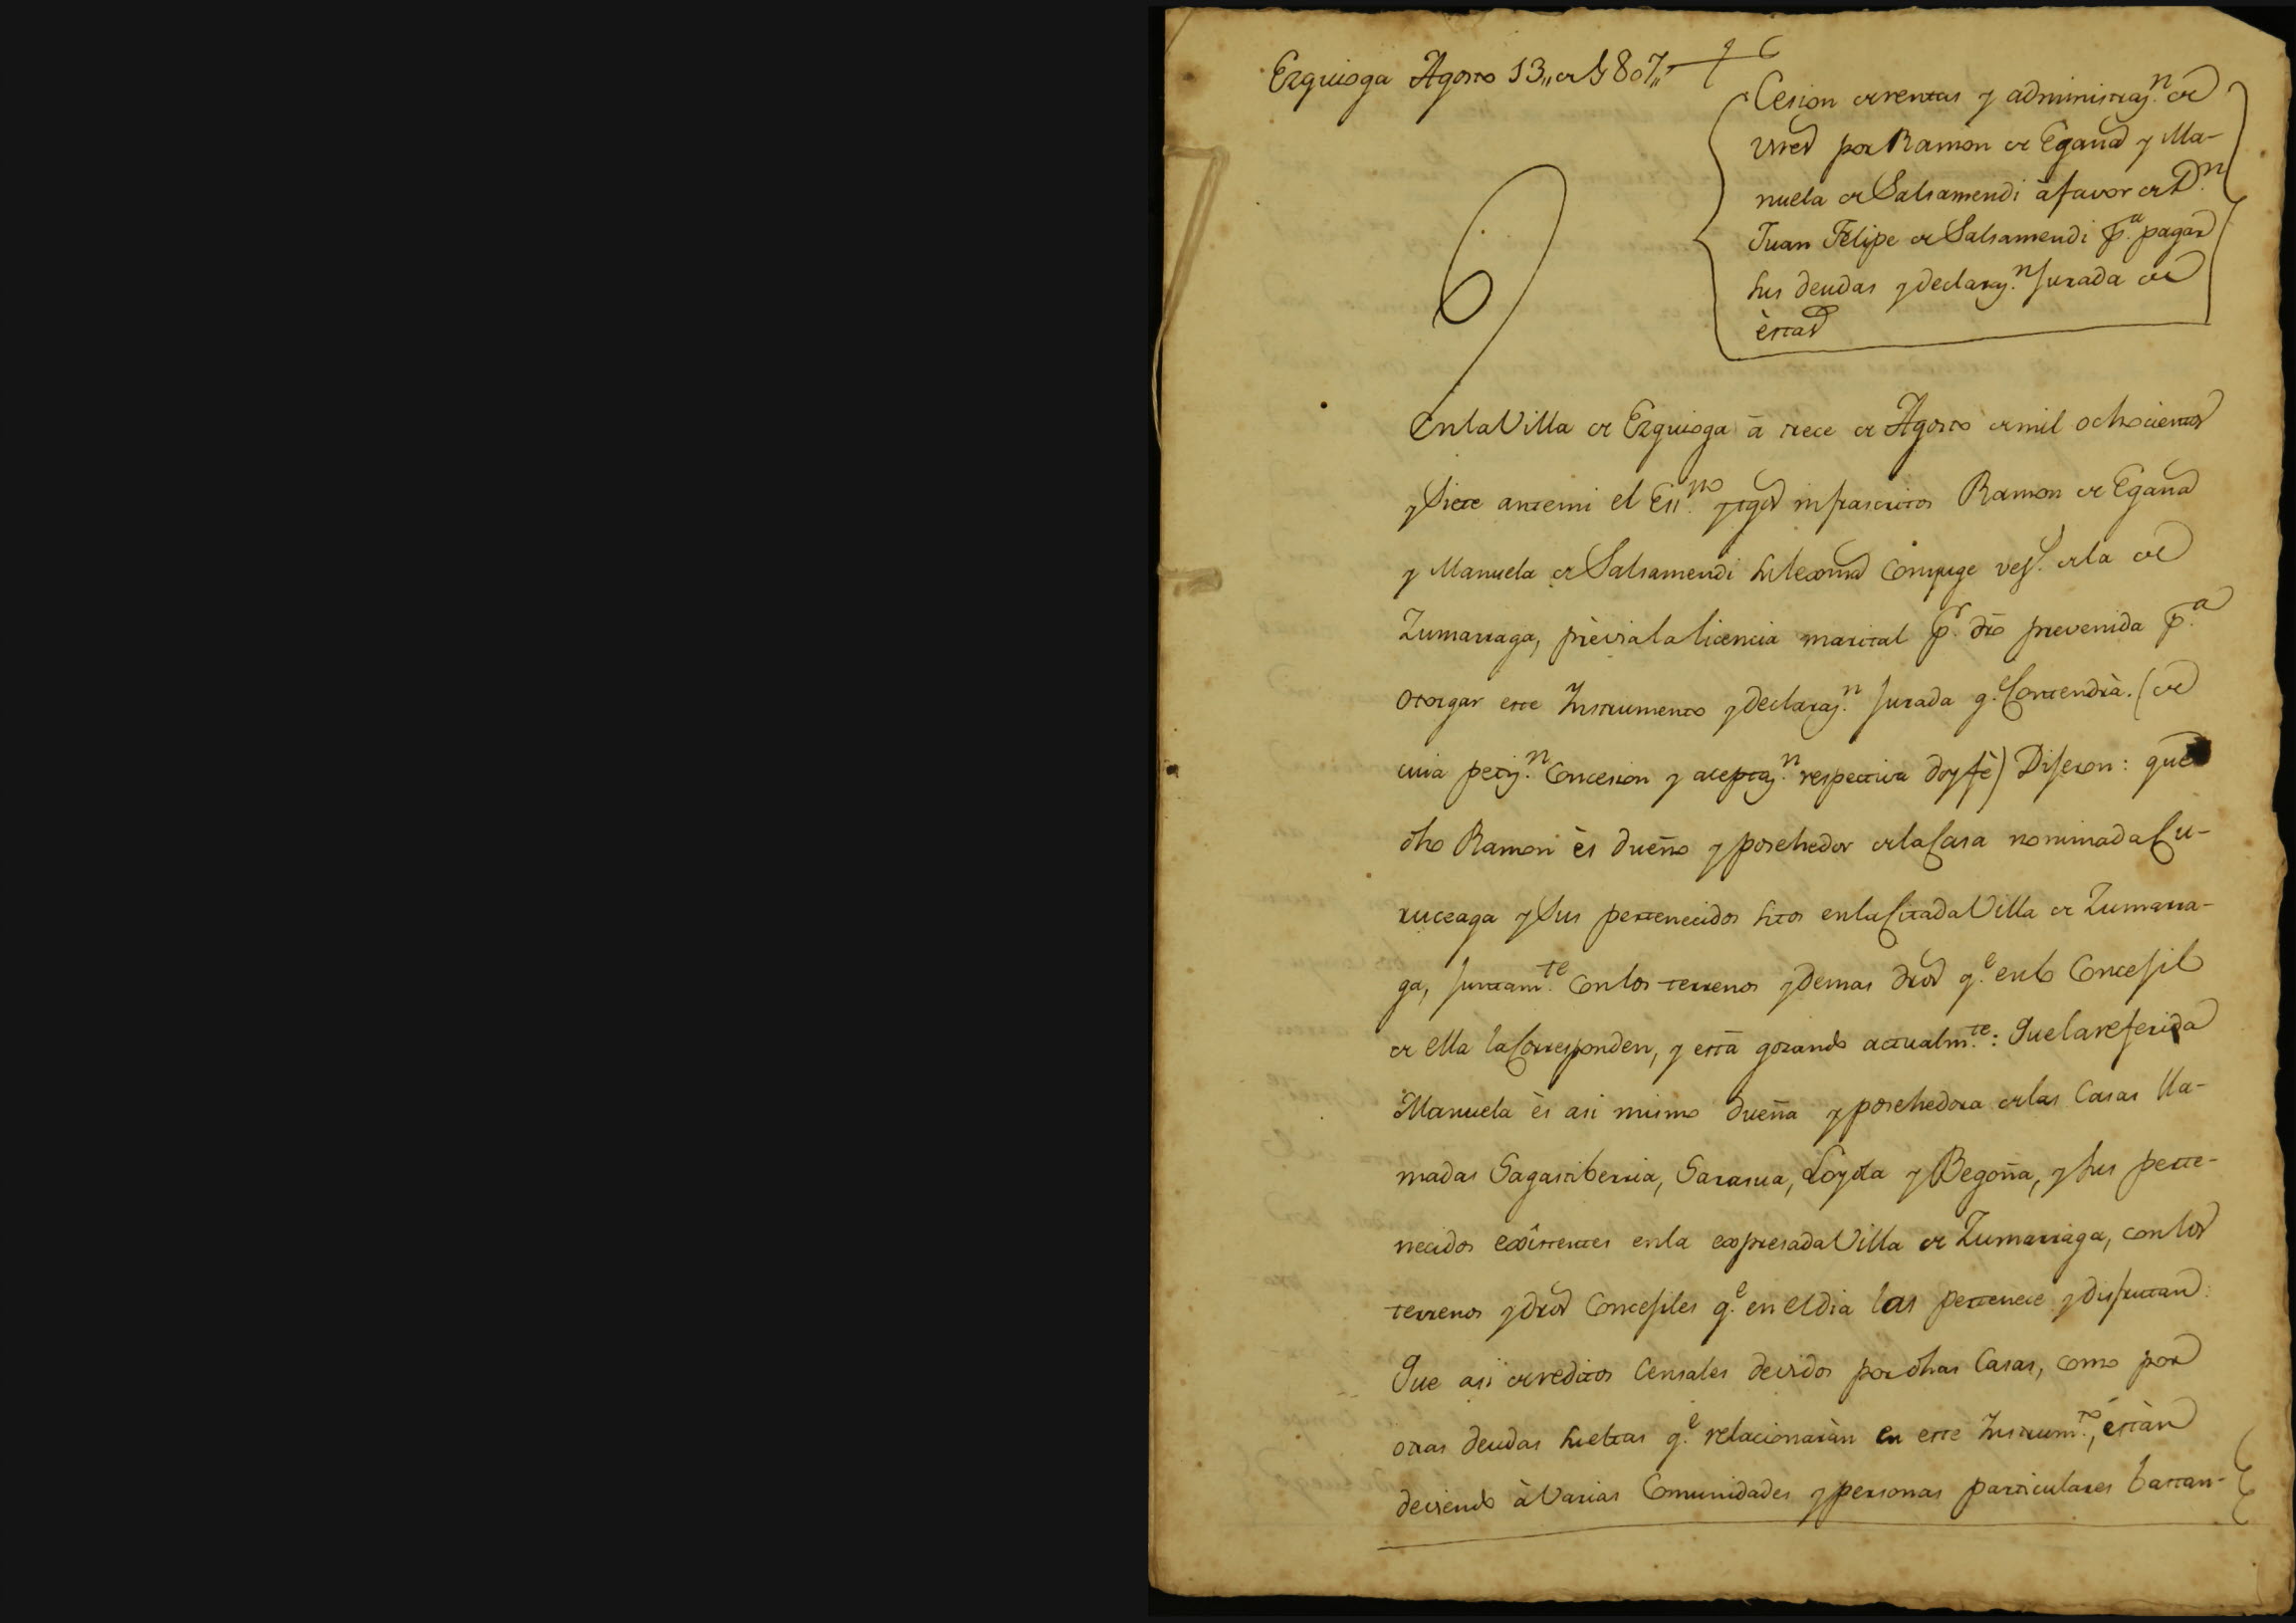 Ezquioga Agosto 13,, de 1807,,
Cesion de rentas y administraz.n de
por Ramon de Egaña y Ma-
nuela de Salsamendi à favor de D.n
Juan Felipe de Salsamendi p.a pagar
sus deudas y declaraz.n Jurada de
èstas
En la Villa de Ezquioga à trece de Agosto de mil ochocientos
y Siete ante mi el Ess.no y tgos infrascritos Ramon de Egaña
y Manuela de Salsamendi su lexma Conyuge vez.s de la de
Zumarraga, prèvia la licencia marital p.r dro prevenida p.a
otorgar este Instrumento y declaraz.n Jurada q.e Contendrà. (de
cuia petiz.n Concesion y aceptaz.n respectiva doy fè) Dijeron: que
dho Ramon ès dueño y posehedor de la Casa nominada Cu-
ruceaga y Sus pertenecidos sitos en la Citada Villa de Zumarra-
ga, Juntam.te Con los terrenos y demas dros q.e en lo Concejil
de ella la Corresponden, y està gozando actualm.te: Que la referida
Manuela ès asi mismo dueña y posehedora de las Casas lla-
madas Sagastiberria, Sarasua, Loyola y Begoña, y sus perte-
necidos exîstentes en la expresada Villa de Zumarraga, con los
terrenos y dros Concejiles q.e en el dia las pertenece y disfrutan:
Que asi de reditos Censales devidos por dhas Casas, como por
otras deudas sueltas q.e relacionaràn en este Instrum.to, èstàn
deviendo à Varias Comunidades y personas particulares bastan-